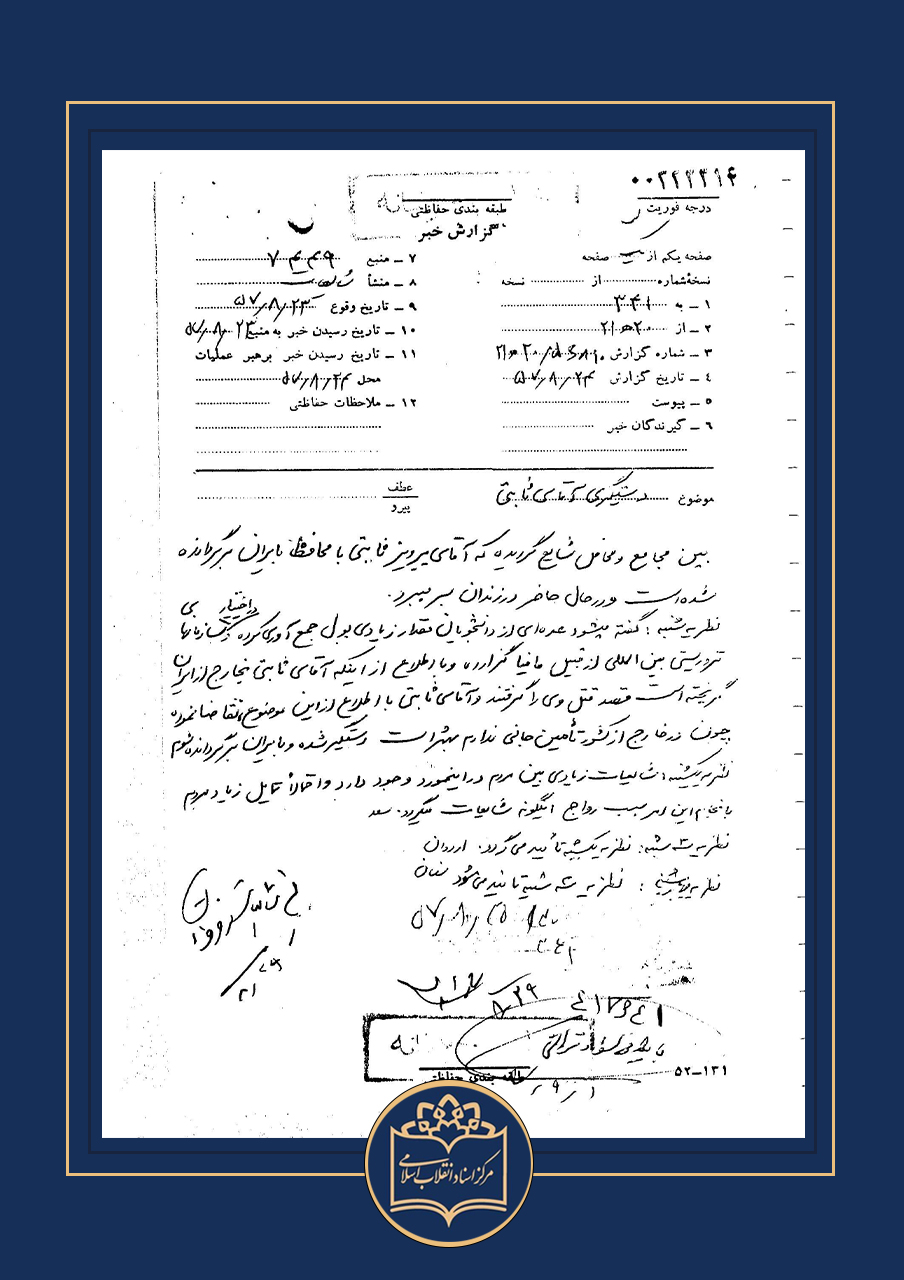 درجه فوریت
طبقه بندی حفاظتی
گزارش خبر
صفحه یکم از یک صفحه
نسخه شماره از نسخه
۱ – به ۳۴۱
۲ – از ۲۰ ه ۲۱
۳ – شماره گزارش
۴ – تاریخ گزارش ۵۷/۸/۲۴
۵ – پیوست
۶ – گیرندگان خبر
۷ – منبع
۸ – منشأ شایعات
۹ – تاریخ وقوع ۵۷/۸/۲۳
۱۰ – تاریخ رسیدن خبر به منبع ۵۷/۸/۲۳
۱۱ – تاریخ رسیدن خبر برهبر عملیات
محل ۵۷/۸/۲۴
۱۲ – ملاحظات حفاظتی
موضوع دستگیری آقای ثابتی
عطف
پیرو
بین مجامع و محافل شایع گردیده که آقای پرویز ثابتی با محافظ بایران برگردانده
شده است و در حال حاضر در زندان بسر میبرد.
نظریه شنبه : گفته میشود عده‌ای از دانشجویان مقدار زیادی پول جمع آوری کرده در اختیار سازمانهای
تروریستی بین المللی از قبیل مافیا گزارده و با اطلاع از اینکه آقای ثابتی بخارج از ایران
گریخته است قصد قتل وی را گرفتند و آقای ثابتی با اطلاع از این موضوع تقاضا نموده
چون در خارج از کشور تأمین جانی ندارم بهتر است دستگیر شده و بایران برگردانده شوم
نظریه یکشنبه : شایعات زیادی بین مردم در اینمورد وجود دارد و احتمالاً تمایل زیاد مردم
بانجام این امر سبب رواج اینگونه شایعات میگردد. سعد
نظریه سه شنبه : نظریه یکشنبه تأیید می گردد.
نظریه چهارشنبه : نظریه سه شنبه تائید می شود
طبقه بندی حفاظتی
۵۲–۱۳۱
مرکز اسناد انقلاب اسلامی